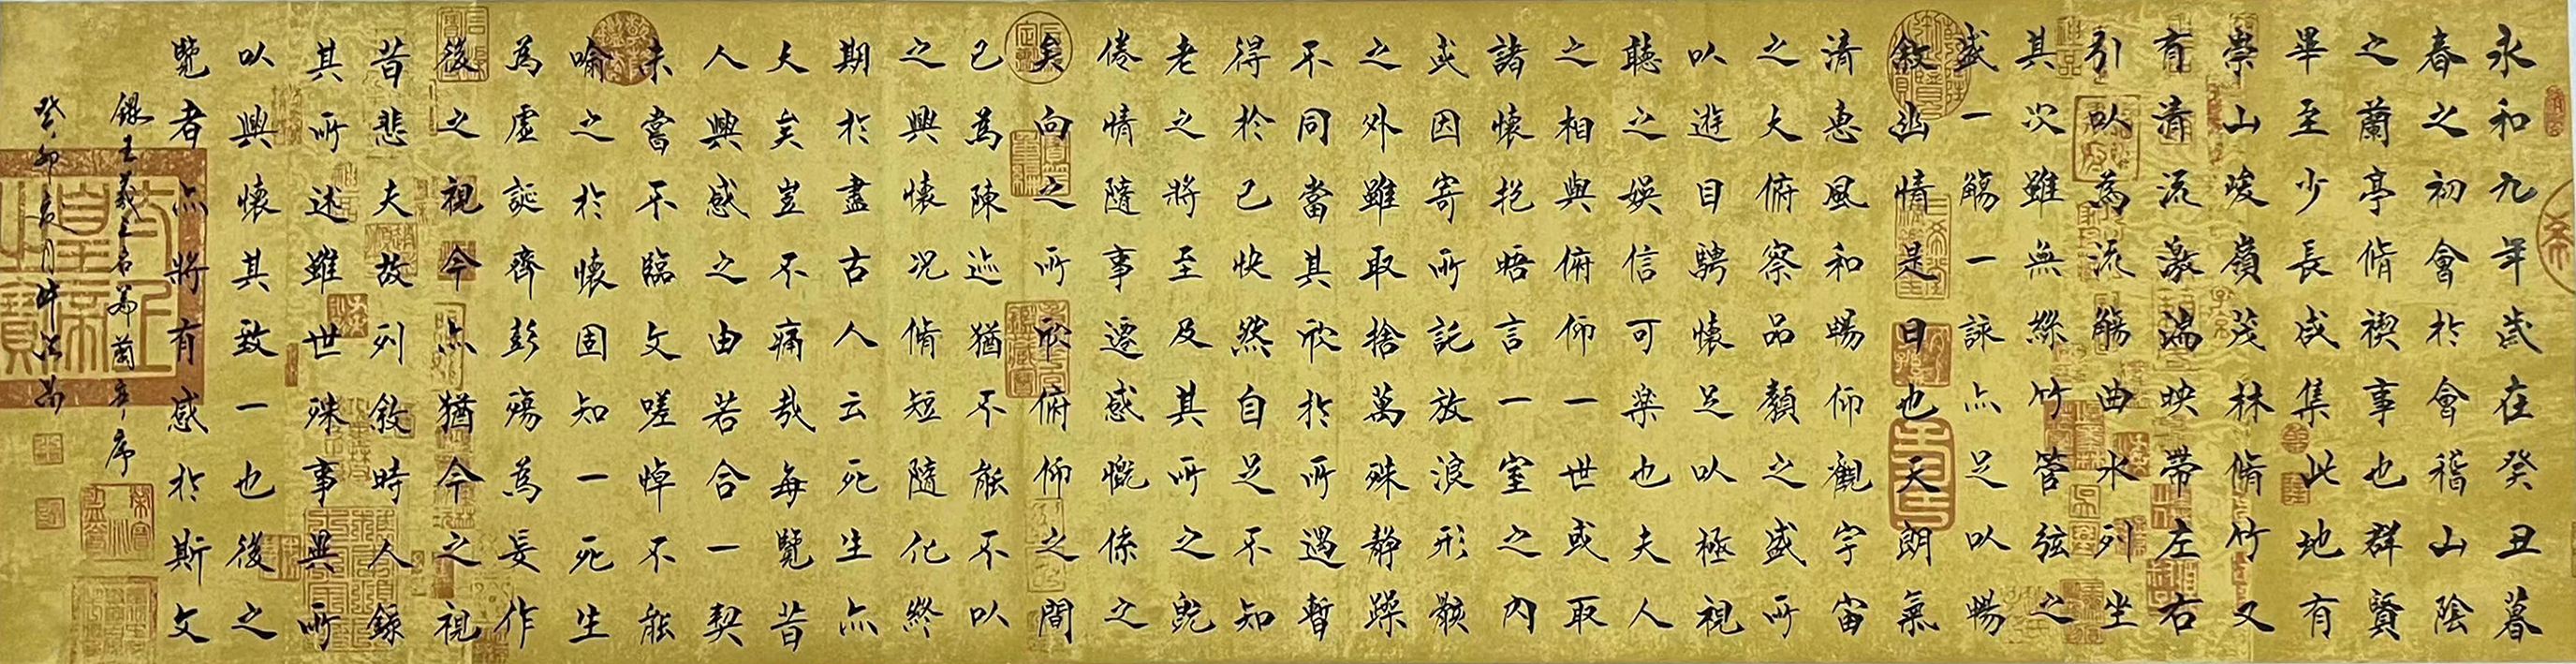 永和九年歲在癸丑暮
春之初會於會稽山陰
之蘭亭脩禊事也群賢
畢至少長咸集此地有
崇山峻嶺茂林脩竹又
有清流激湍映帶左右
引以為流觴曲水列坐
其次雖無絲竹管弦之
盛一觴一詠亦足以暢
敘幽情是日也天朗氣
清惠風和暢仰觀宇宙
之大俯察品類之盛所
以遊目騁懷足以極視
聽之娛信可樂也夫人
之相與俯仰一世或取
諸懷抱晤言一室之內
或因寄所託放浪形骸
之外雖取捨萬殊靜躁
不同當其欣於所遇暫
得於己快然自足不知
老之將至及其所之既
倦情隨事遷感慨係之
矣向之所欣俯仰之間
已為陳迹猶不能不以
之興懷況脩短隨化終
期於盡古人云死生亦
大矣豈不痛哉每覽昔
人興感之由若合一契
未嘗不臨文嗟悼不能
喻之於懷固知一死生
為虛誕齊彭殤為妄作
後之視今亦猶今之視
昔悲夫故列敘時人錄
其所述雖世殊事異所
以興懷其致一也後之
覽者亦將有感於斯文
錄王羲之名篇蘭亭序
癸卯亥月